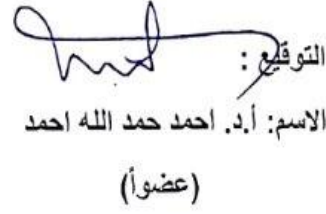 التوقيع :
الاسم: أ.د. احمد حمد الله احمد
(عضواً)